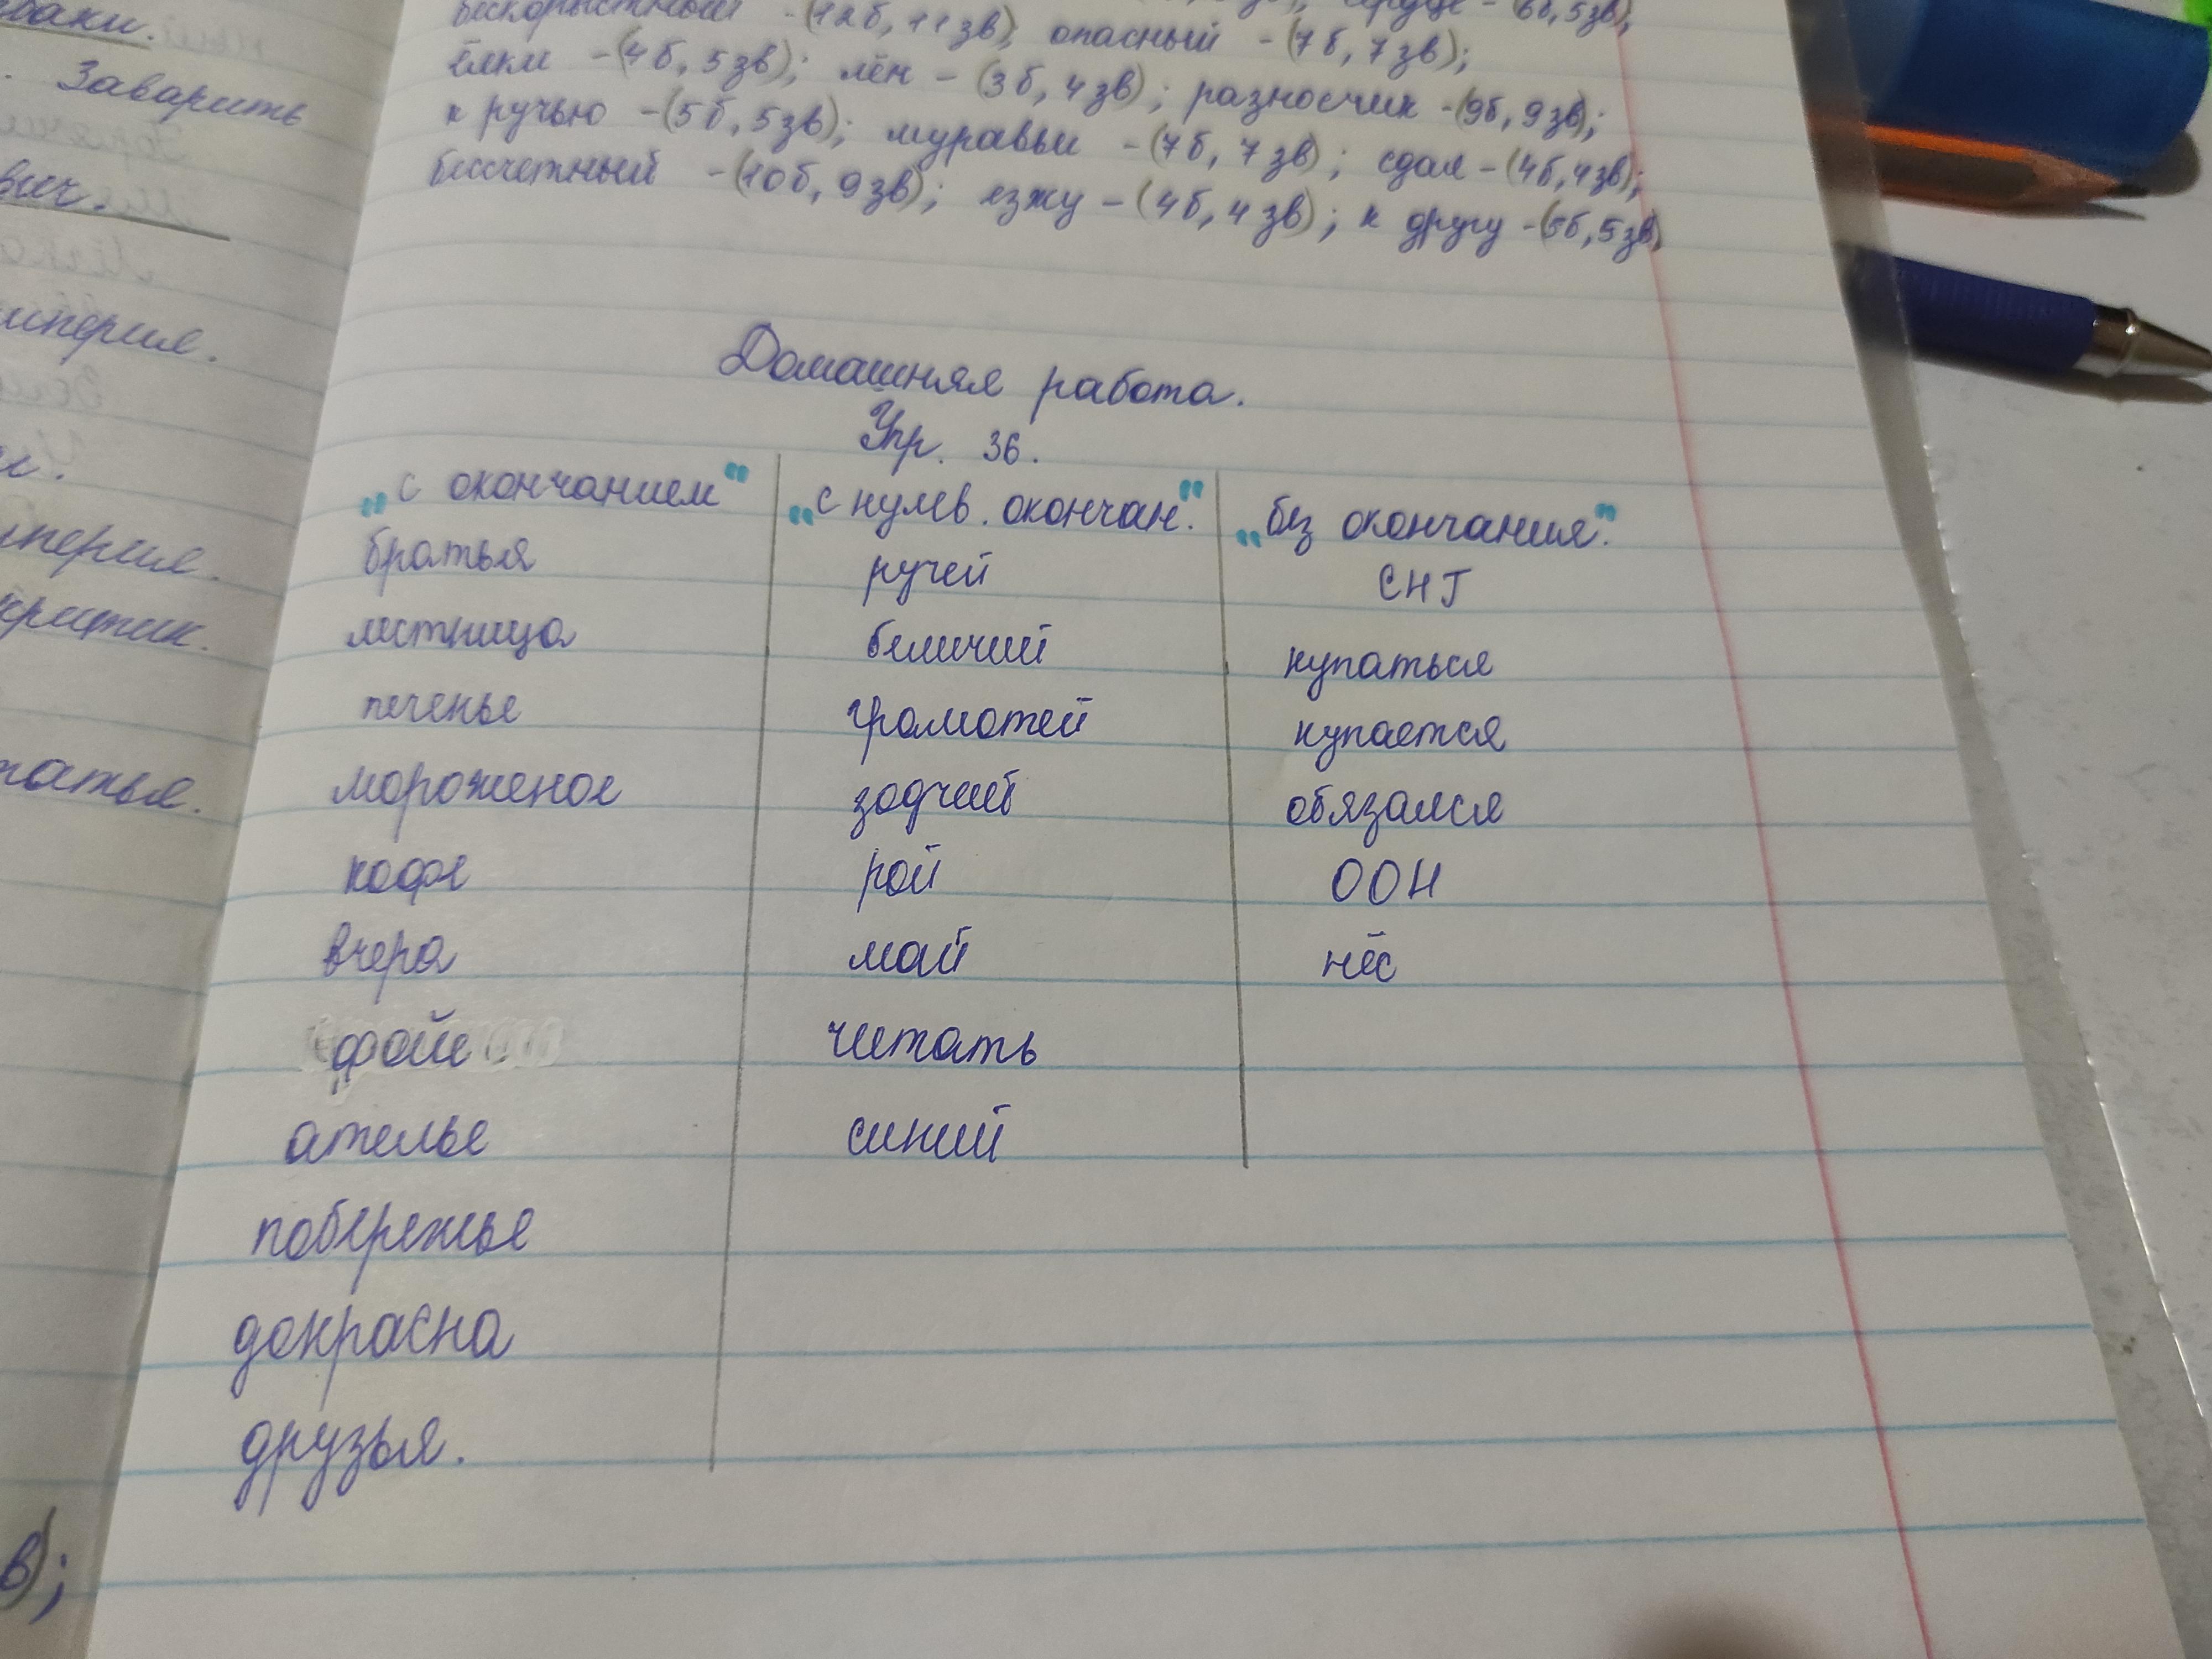 баки.
Заварить
вич.
империя.
империя.
критик.
татья.
в);
бескорыстный -(12б, 11зв); опасный -(7б, 7зв);
ёлки -(4б, 5зв); лён -(3б, 4зв); разносчик -(9б, 9зв);
к ручью -(5б, 5зв); муравьи -(7б, 7зв); сдая -(4б, 4зв);
бессчетный -(10б, 9зв); езжу -(4б, 4зв); к другу -(5б, 5зв)
Домашняя работа.
Упр. 36.
„с окончанием" „с нулев. окончан." „без окончания."
братья ручей СНГ
лестница беличий купаться
печенье грамотей купается
мороженое зодчий обязался
кофе рой ООН
вчера май нёс
фойе читать
ателье синий
побережье
докрасна
друзья.